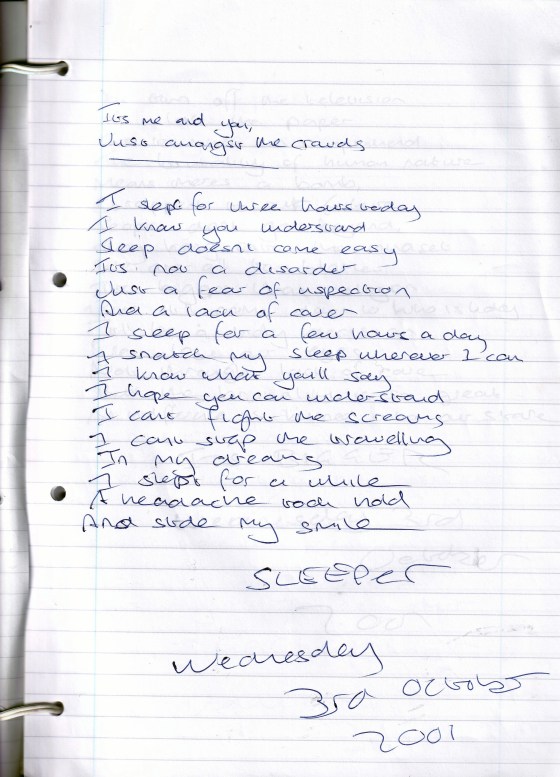 Its me and you,
Just amongst the crowds
I slept for three hours today
I know you understand
Sleep doesnt come easy
Its not a disorder
Just a fear of inspection
And a lack of cover
I sleep for a few hours a day
I snatch my sleep wherever I can
I know what you'll say
I hope you can understand
I cant fight the screams
I cant stop the travelling
In my dreams
I slept for a while
A headache took hold
And stole my smile
SLEEPER
Wednesday
3rd October
2001